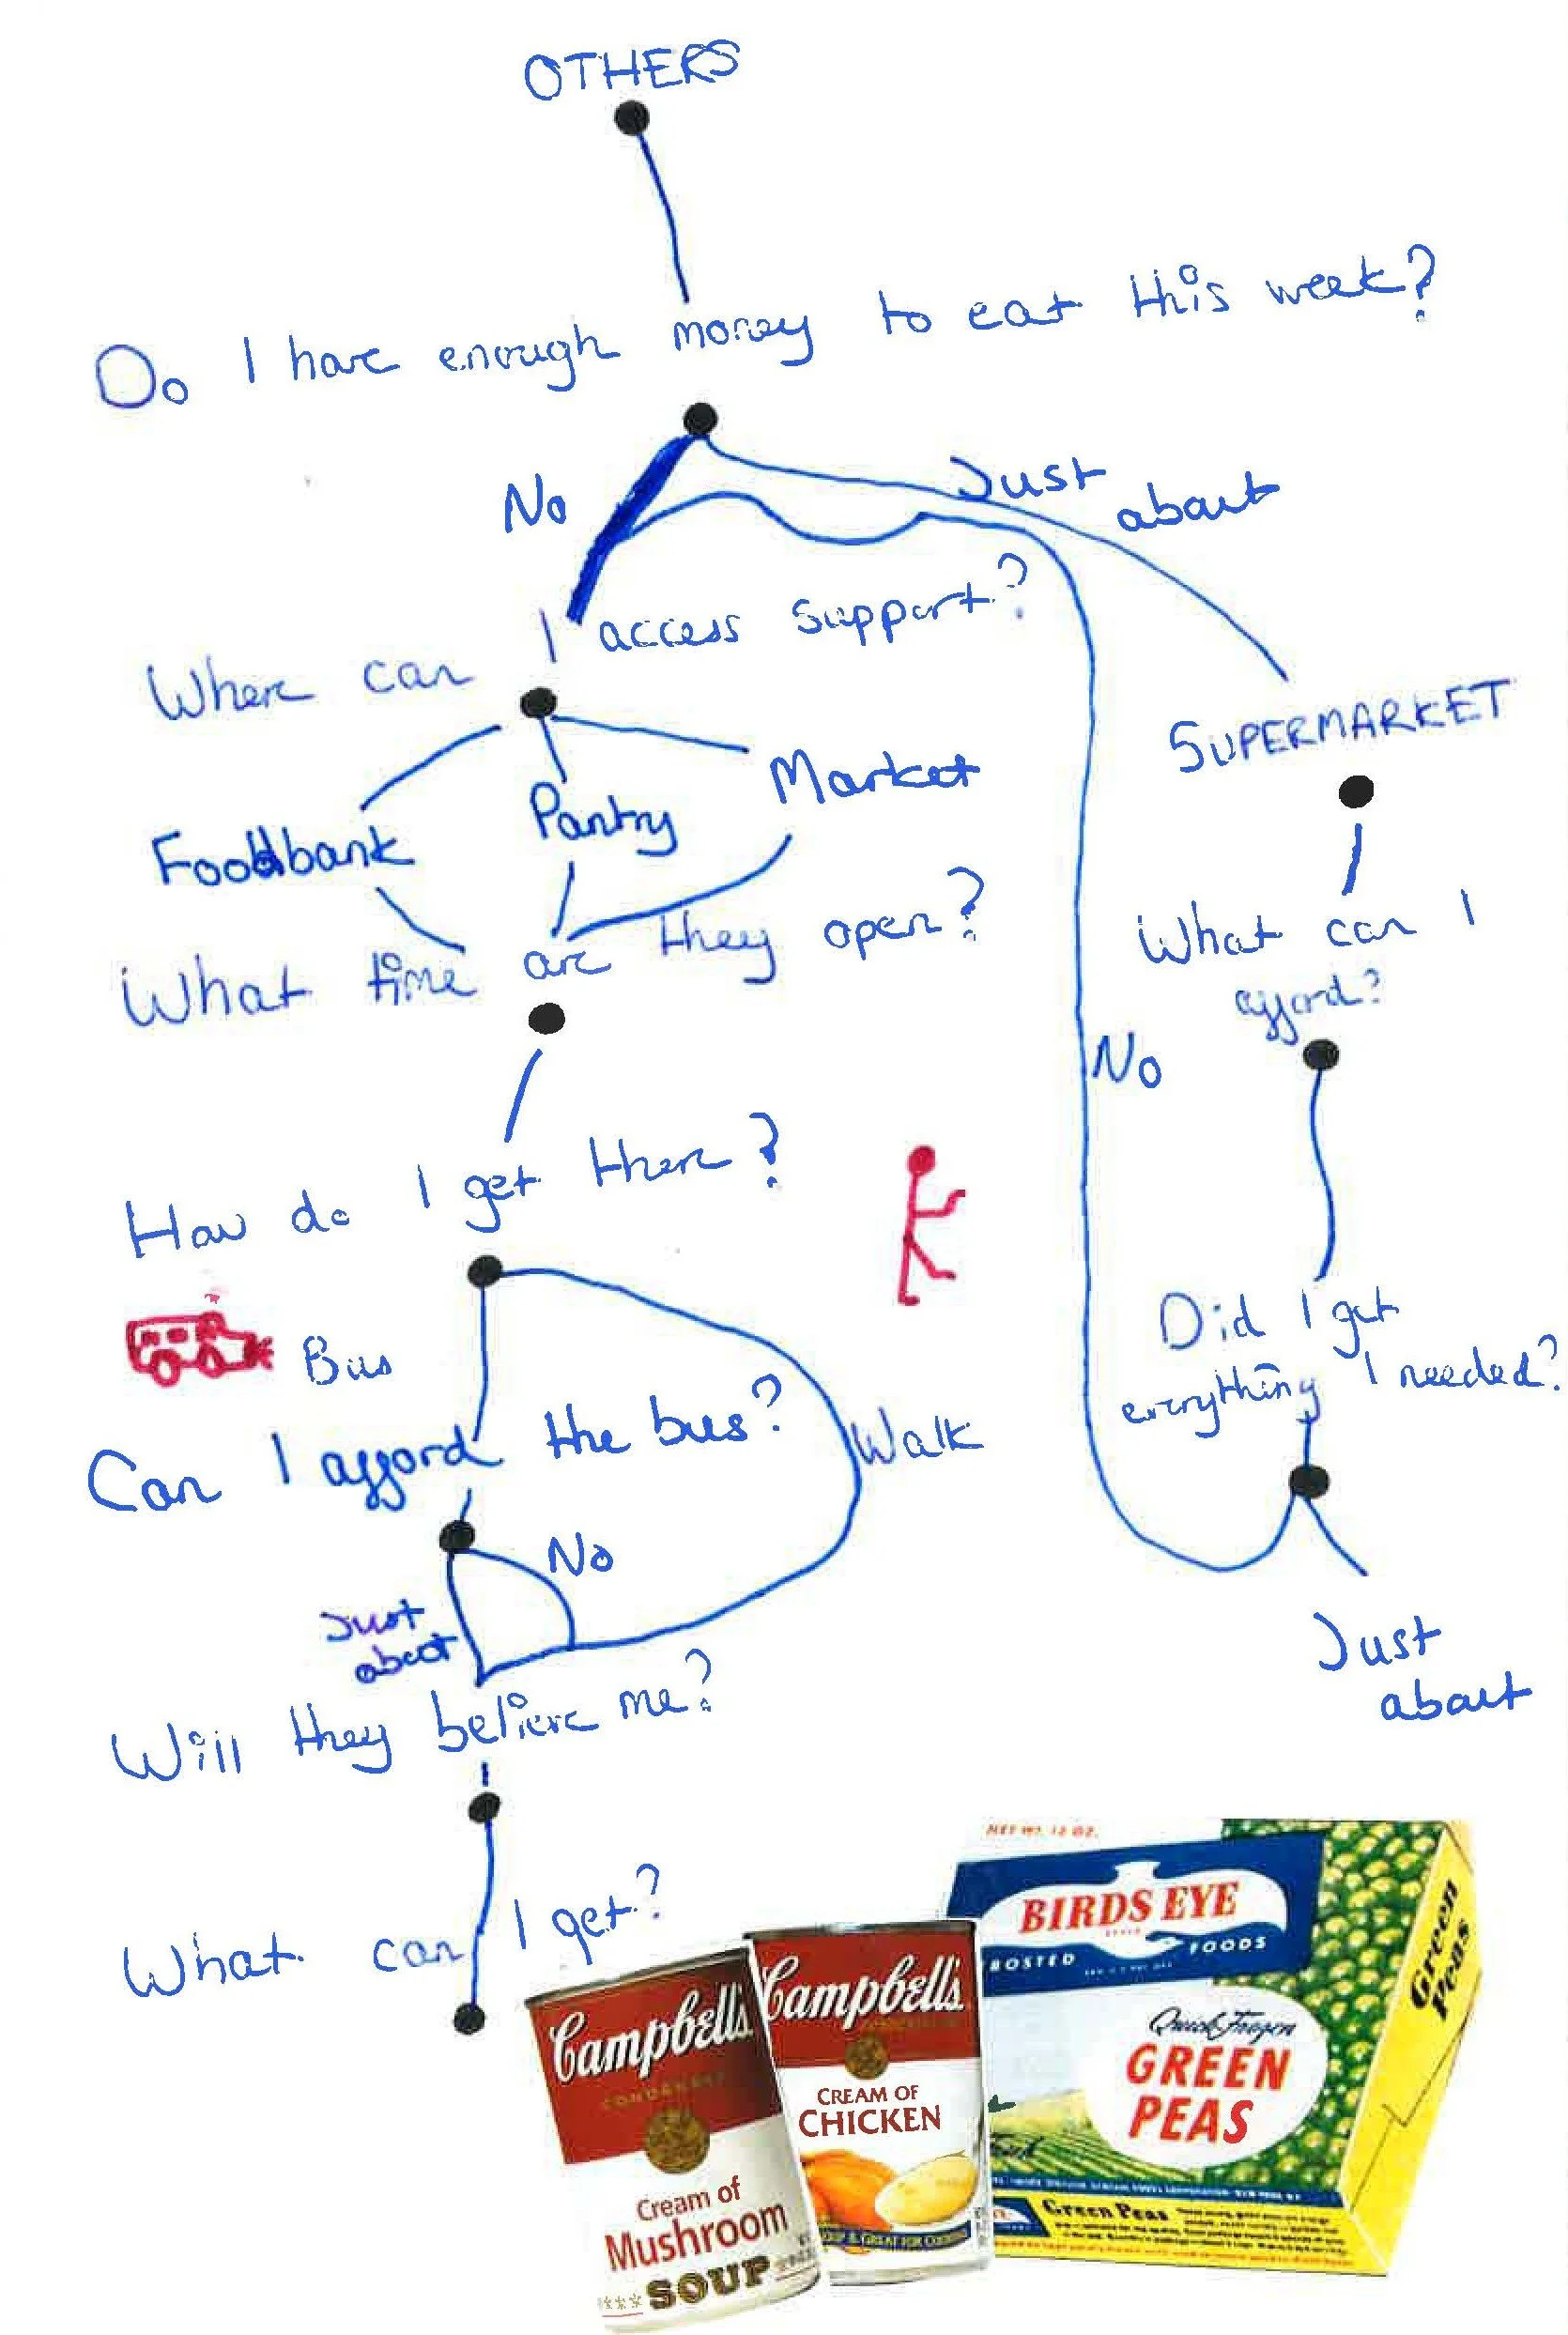 OTHERS
Do I have enough money to eat this week?
No
Just
about
Where can I access support?
SUPERMARKET
Foodbank
Pantry
Market
What can I
afford?
What time are they open?
No
How do I get there?
Bus
Did I get
everything I needed?
Can I afford the bus?
Walk
No
Just
about
Just
about
Will they believe me?
What can I get?
NET WT. 12 OZ.
BIRDS EYE
FOODS
Quick Frozen
GREEN
PEAS
Green
Peas
Green Peas
Campbell's
CONDENSED
Cream of
Mushroom
SOUP
Campbell's
CREAM OF
CHICKEN